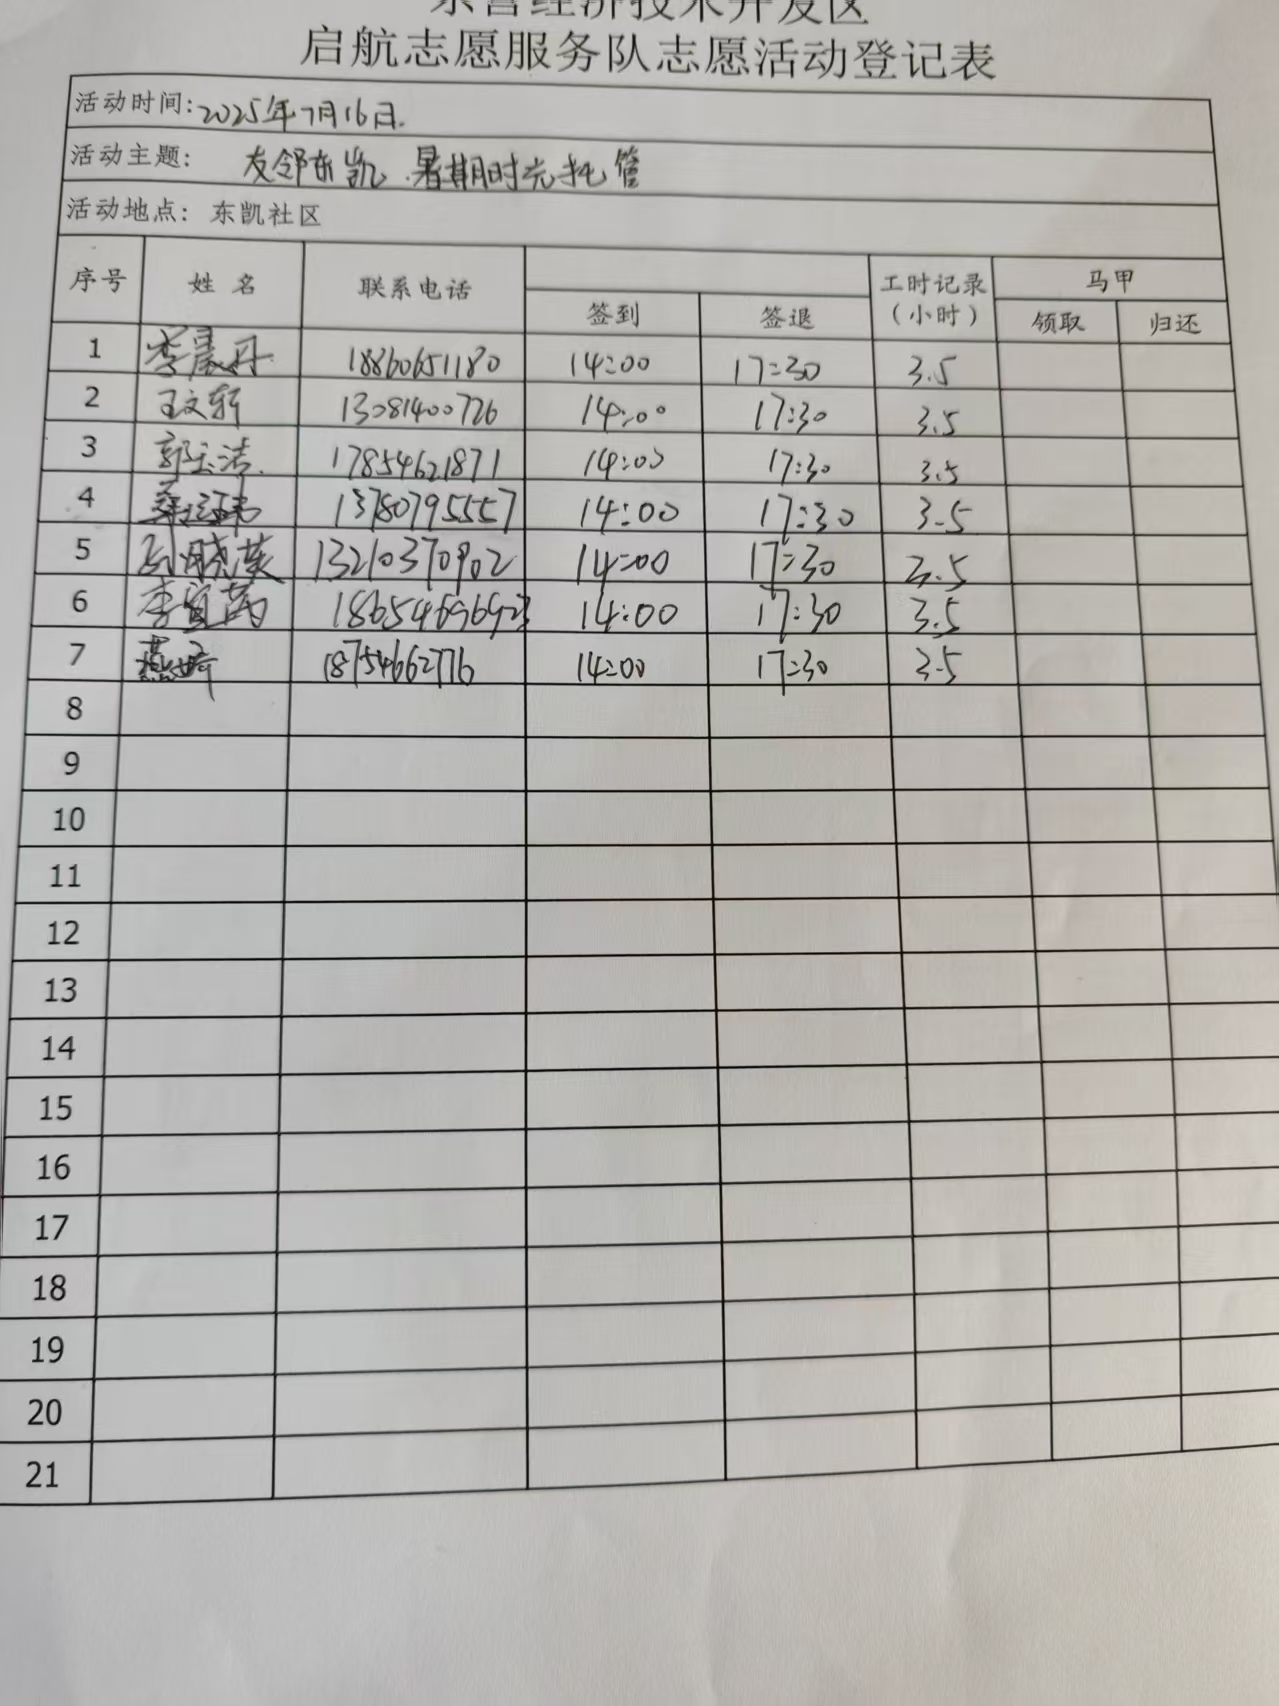 东营经济技术开发区
启航志愿服务队志愿活动登记表
活动时间:2025年7月16日.
活动主题: 友邻东凯.暑期时光托管
活动地点: 东凯社区
序号 姓名 联系电话 签到 签退 工时记录(小时) 马甲 领取 归还
1 李晨丹 18860651180 14:00 17:30 3.5
2 王文轩 13081400726 14:00 17:30 3.5
3 郭玉洁 17854621871 14:00 17:30 3.5
4 13780795557 14:00 17:30 3.5
5 刘晓英 13210370902 14:00 17:30 3.5
6 李宜茜 14:00 17:30 3.5
7 燕琦 18754662776 14:00 17:30 3.5
8
9
10
11
12
13
14
15
16
17
18
19
20
21